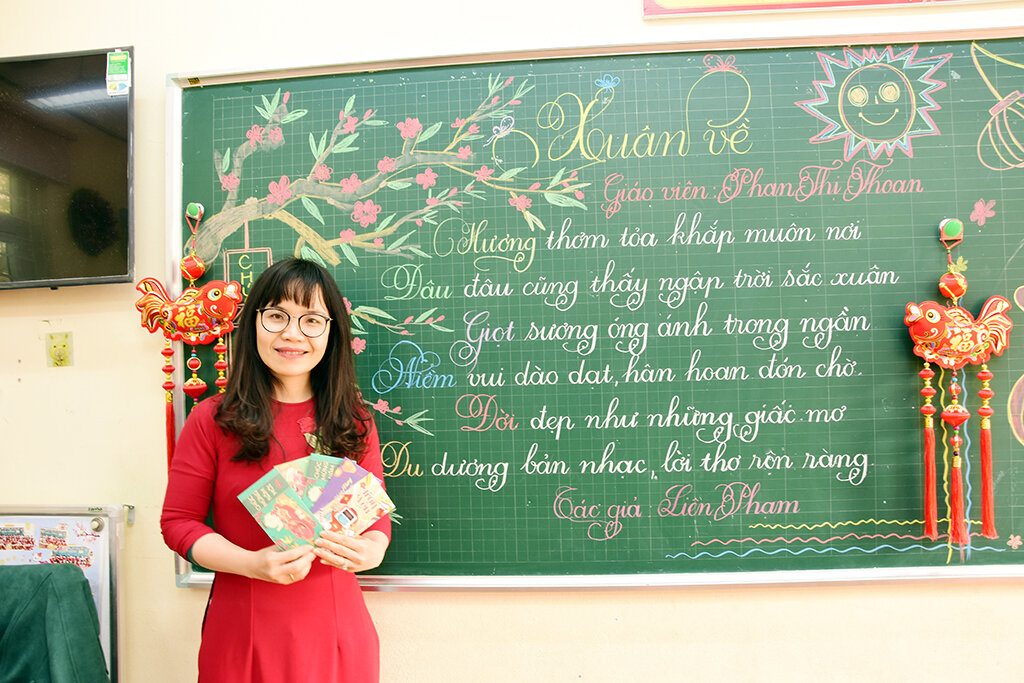 Xuân về
Giáo viên: Phan Thị Thoan
Hương thơm tỏa khắp muôn nơi
Đâu đâu cũng thấy ngập trời sắc xuân
Giọt sương óng ánh trong ngần
Niềm vui dào dạt, hân hoan đón chờ.
Đời đẹp như những giấc mơ
Du dương bản nhạc, lời thơ rộn ràng
Tác giả Liên Phạm
福